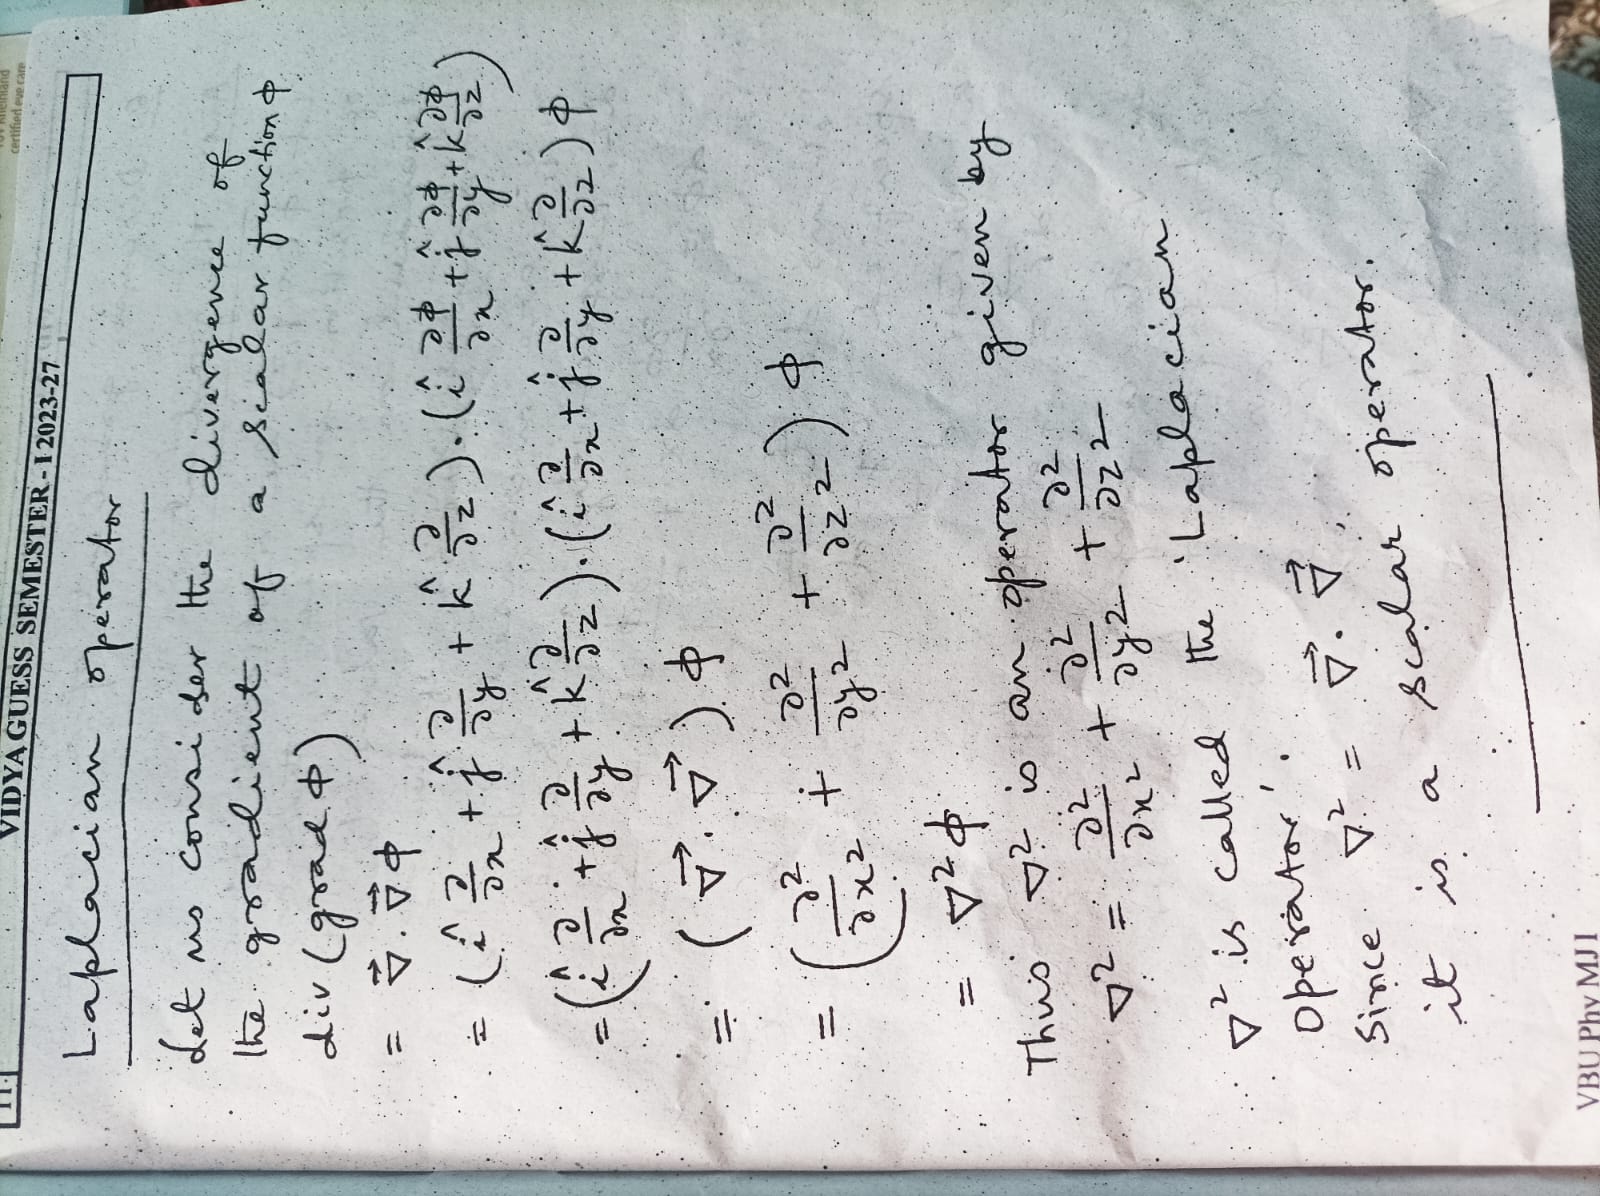 certified eye care
11
VIDYA GUESS SEMESTER-I 2023-27
Laplacian operator
Let us consider the divergence of
the gradient of a scalar function ϕ
div (grad ϕ)
= ∇⃗ . ∇⃗ ϕ
= (î ∂/∂x + ĵ ∂/∂y + k̂ ∂/∂z) . (î ∂ϕ/∂x + ĵ ∂ϕ/∂y + k̂ ∂ϕ/∂z)
= (î ∂/∂x + ĵ ∂/∂y + k̂ ∂/∂z) . (î ∂/∂x + ĵ ∂/∂y + k̂ ∂/∂z) ϕ
= (∇⃗ . ∇⃗) ϕ
= (∂²/∂x² + ∂²/∂y² + ∂²/∂z²) ϕ
= ∇²ϕ
Thus ∇² is an operator given by
∇² = ∂²/∂x² + ∂²/∂y² + ∂²/∂z²
∇² is called the 'Laplacian
operator'.
Since ∇² = ∇⃗ . ∇⃗,
it is a scalar operator.
VBU Phy MJ I